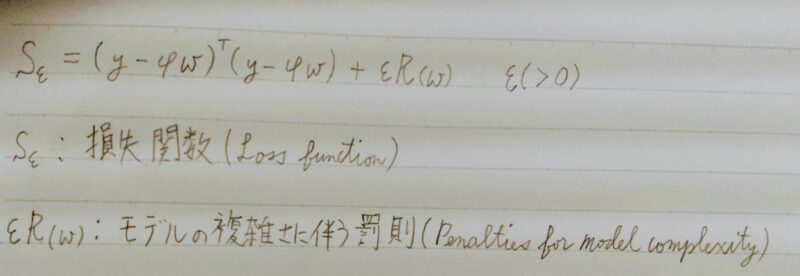 Sε = (y − φw)ᵀ(y − φw) + εR(w)  ε(>0)
Sε : 損失関数 (Loss function)
εR(w) : モデルの複雑さに伴う罰則 (Penalties for model complexity)